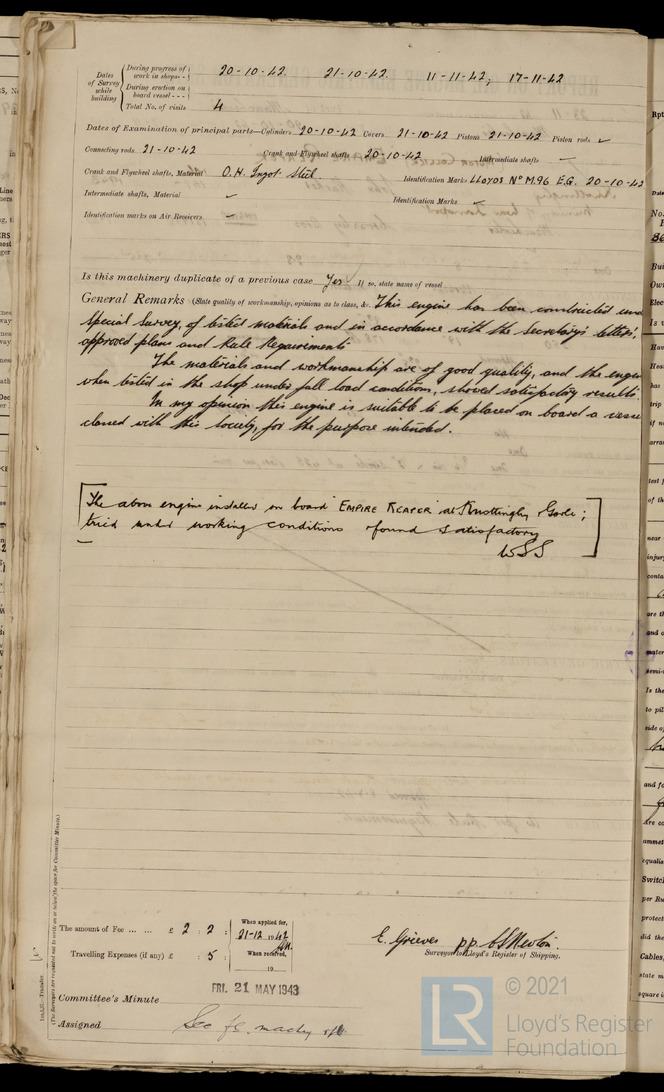 Dates of Survey while building
During progress of work in shops - - 20-10-42. 21-10-42. 11-11-42, 17-11-42
During erection on board vessel - - -
Total No. of visits 4
Dates of Examination of principal parts—Cylinders 20-10-42 Covers 21-10-42 Pistons 21-10-42 Piston rods ✓
Connecting rods 21-10-42 Crank and Flywheel shafts 20-10-42 Intermediate shafts —
Crank and Flywheel shafts, Material O.H. Ingot Steel Identification Marks LLOYDS No M.96 E.G. 20-10-42
Intermediate shafts, Material Identification Marks
Identification marks on Air Receivers
Is this machinery duplicate of a previous case Yes If so, state name of vessel
General Remarks (State quality of workmanship, opinions as to class, &c. This engine has been constructed
Special Survey, of tested materials and in accordance with the Secretary's letters,
approved plans and Rule Requirements
The materials and workmanship are of good quality, and the
when tested in the shop under full load conditions, showed satisfactory results.
In my opinion this engine is suitable to be placed on board a
classed with this Society, for the purpose intended.
[The above engine installed on board "EMPIRE REAPER" at Knottingley Goole;
tried under working conditions & found satisfactory
WSS]
The amount of Fee ... ... £ 2 : 2 :
When applied for,
21-12 1942
Travelling Expenses (if any) £ : 5 :
When received,
19
E. Grieves pp.
Surveyor to Lloyd's Register of Shipping.
FRI. 21 MAY 1943
Committee's Minute
Assigned See F.E. machy rpt
(The Surveyors are requested not to write on or below the space for Committee Minute.)
© 2021
LR
Lloyd's Register
Foundation